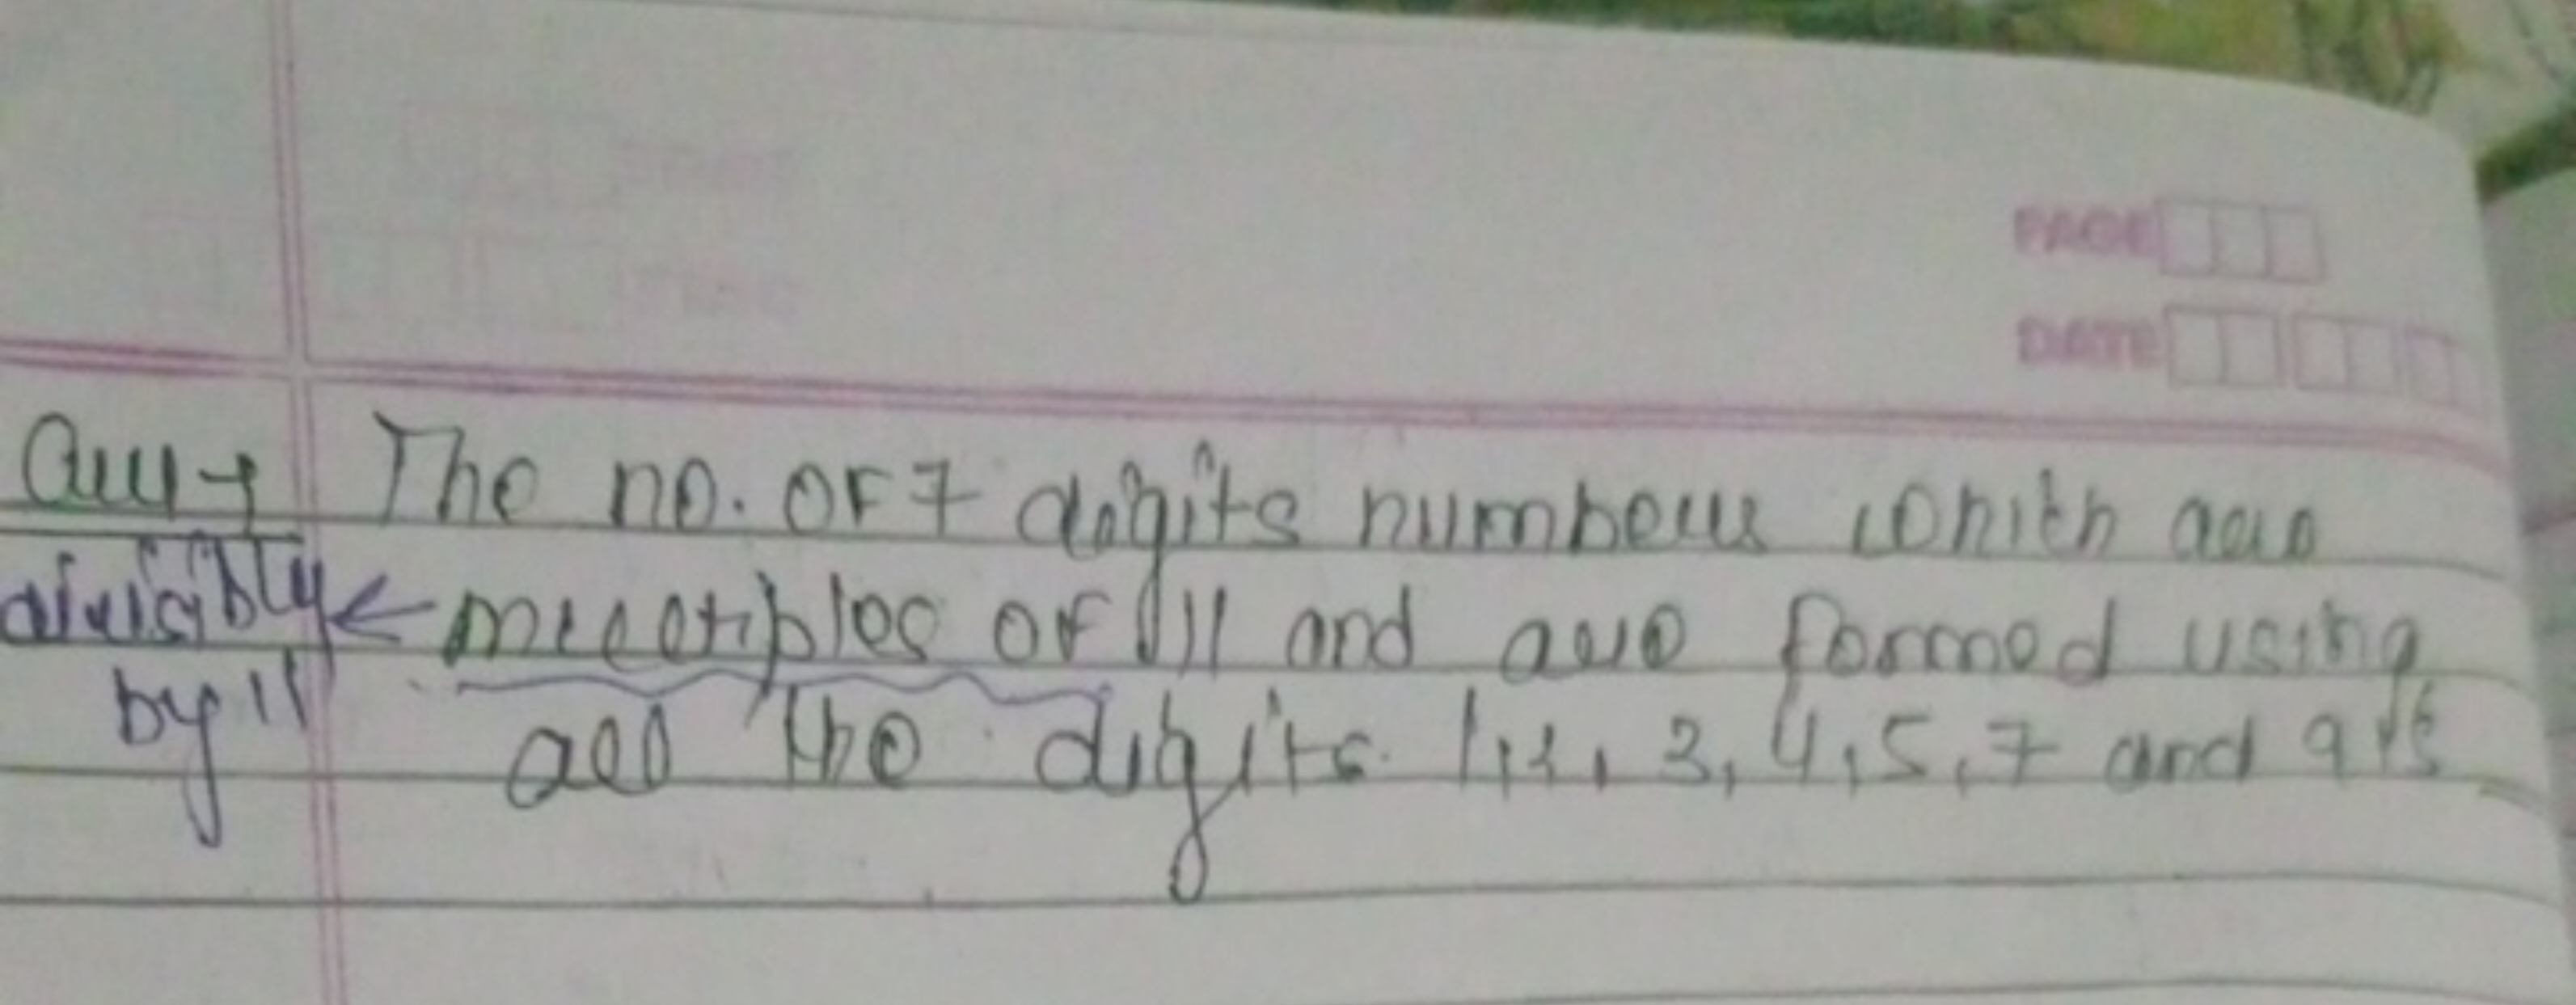 PAGE
DATE
Que→ The no. of 7 digits numbers which are
divisibly ← multiples of 11 and are formed using
by 11 all the digits 1,2, 3, 4, 5, 7 and 9 is